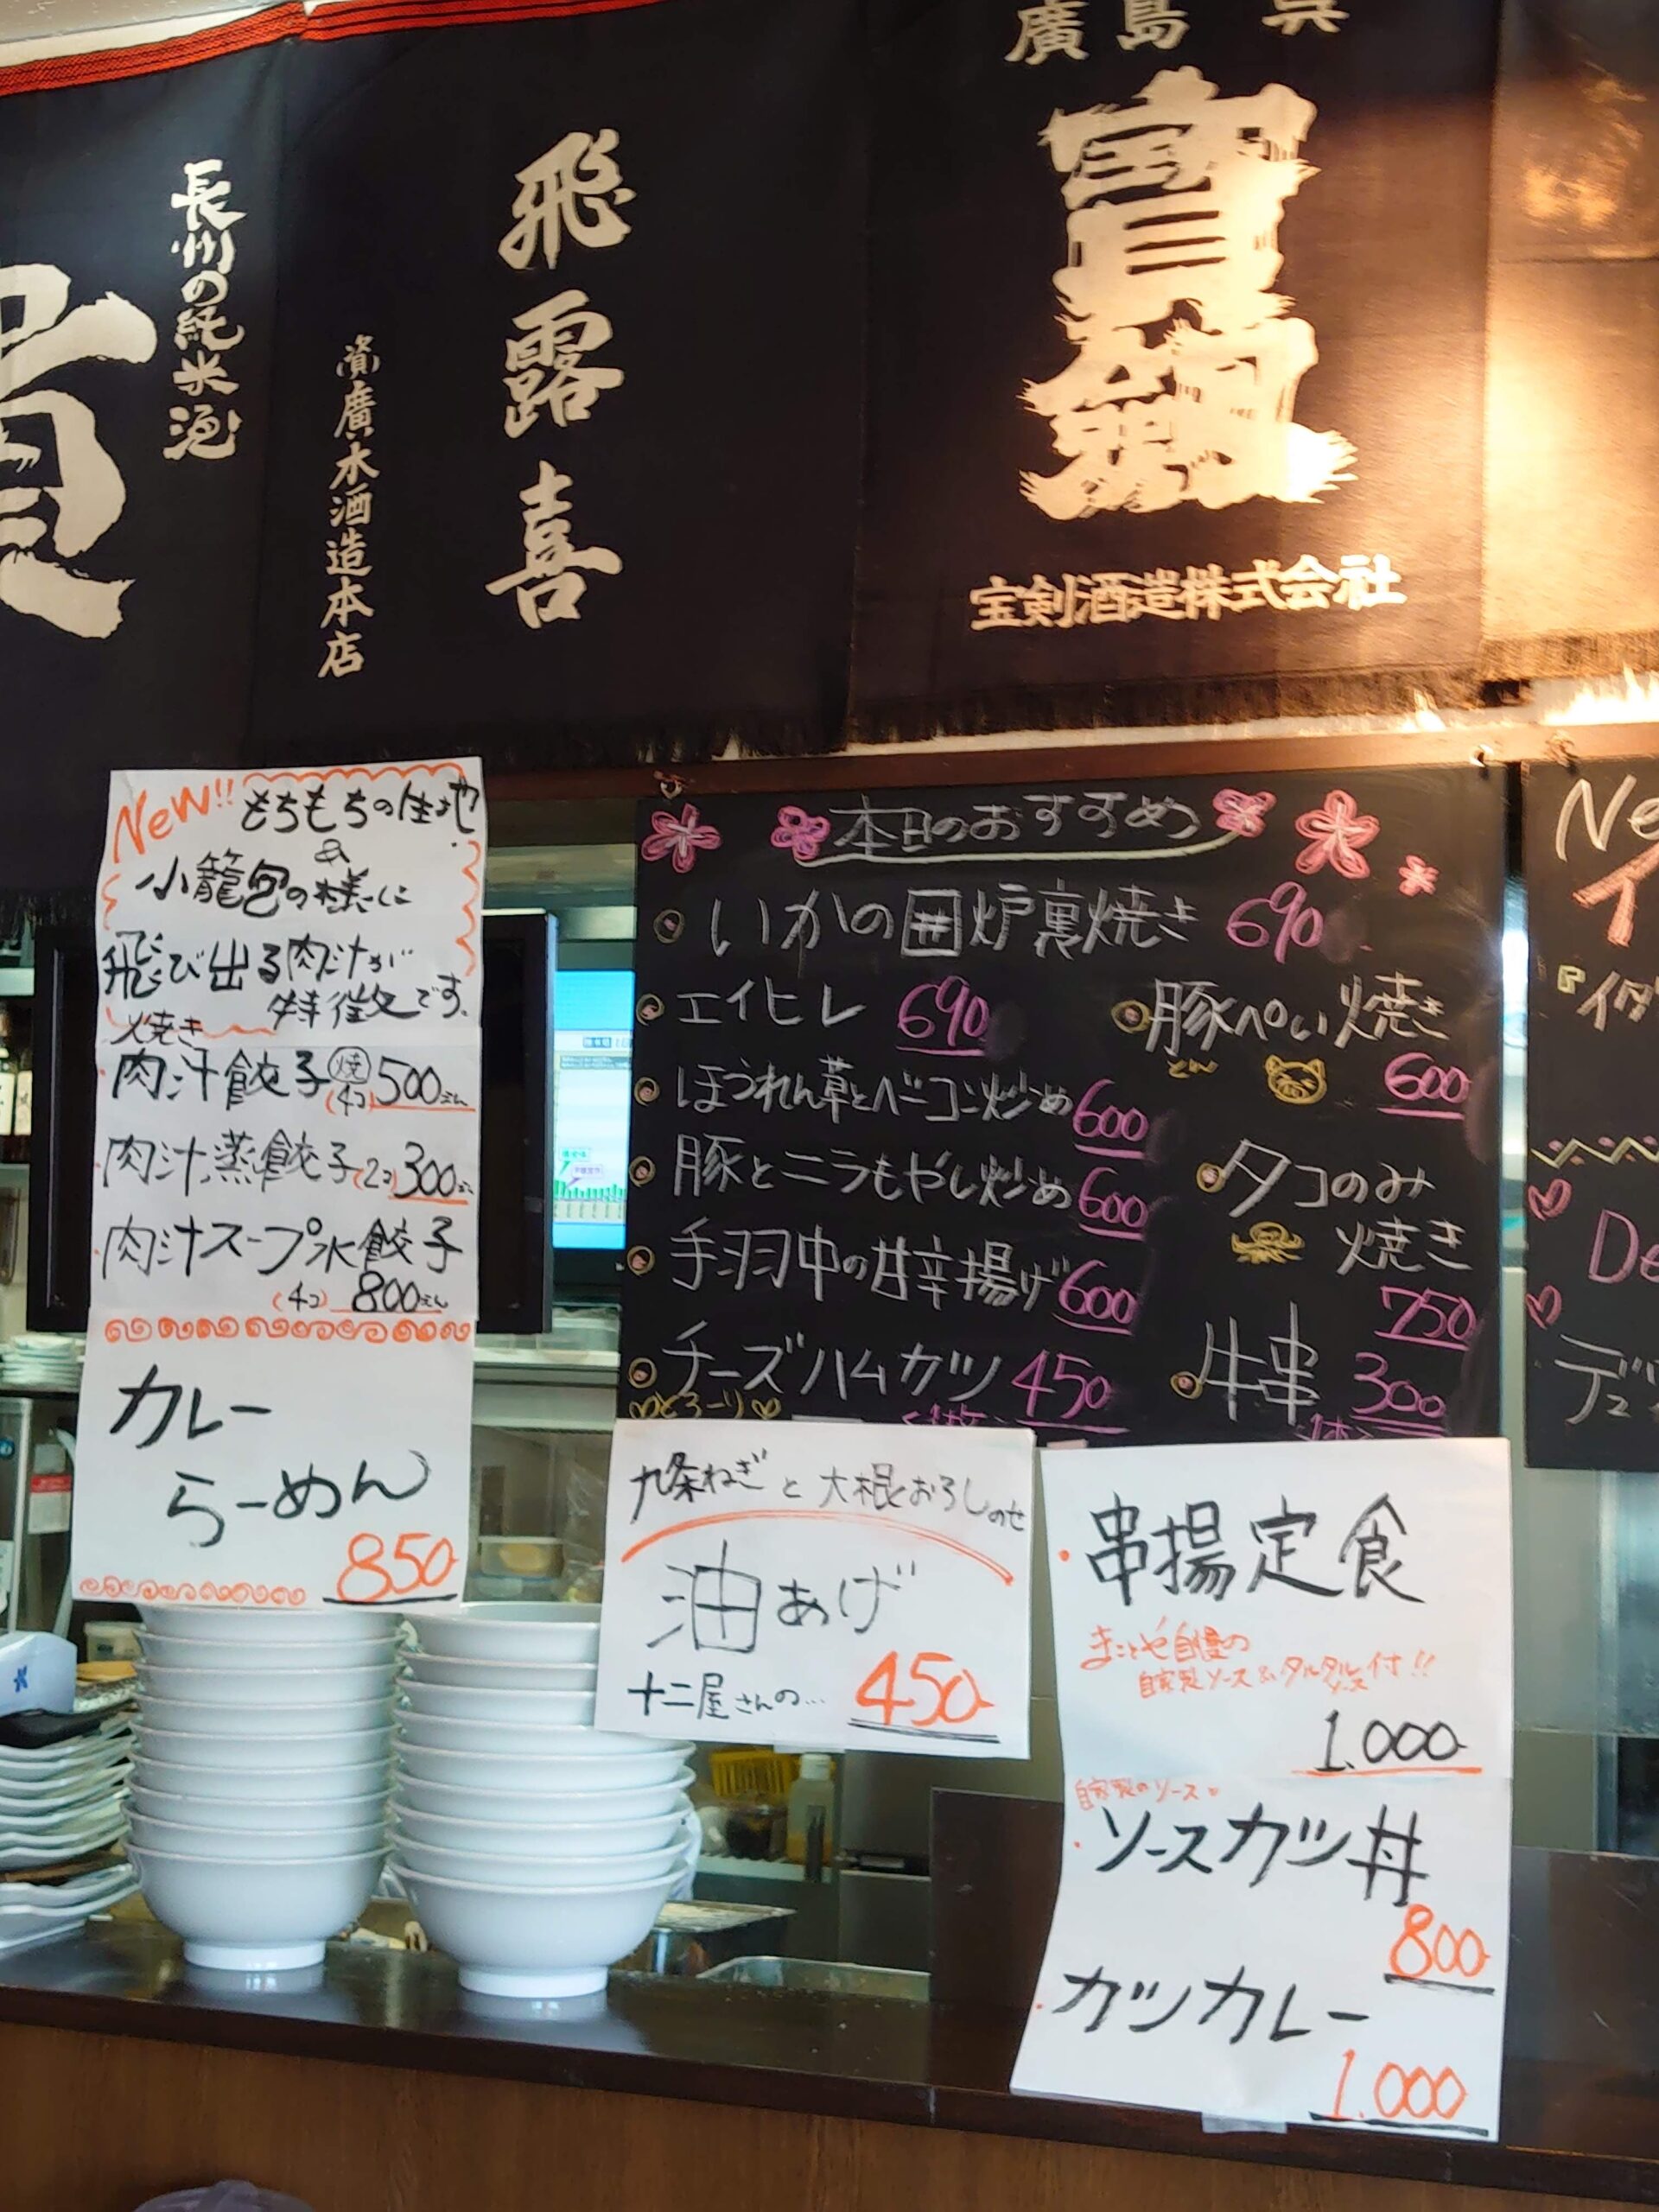 長州の純米酒
貴
飛露喜
廣木酒造本店
廣島 呉
寳剣
宝剣酒造株式会社
New!! もちもちの生地
&
小籠包の様に
飛び出る肉汁が
特徴です。
焼き
肉汁餃子 焼 (4コ) 500えん
肉汁蒸餃子 (2コ) 300えん
肉汁スープ水餃子
(4コ) 800えん
カレー
らーめん
850-
本日のおすすめ
いかの囲炉裏焼き 690.
エイヒレ 690
ほうれん草とベーコン炒め 600
豚とニラもやし炒め 600
手羽中の甘辛揚げ 600
チーズハムカツ 450
とろーり
豚ぺい焼き
とん
600
タコのみ
焼き
750
牛串 300
九条ねぎと大根おろしのせ
油あげ
十二屋さんの… 450-
串揚定食
まことや自慢の
自家製ソース&タルタルソース付!!
1.000-
自家製のソース
ソースカツ丼
800-
カツカレー
1.000